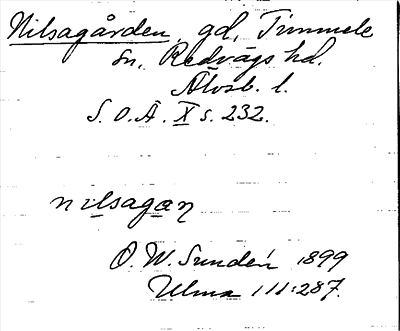 Nilsagården, gd, Timmele
sn, Redvägs hd.
Älvsb. l.
S.O.Ä. X s. 232.
nilsagaɳ
O.W. Sundén 1899
Ulma 111:287.